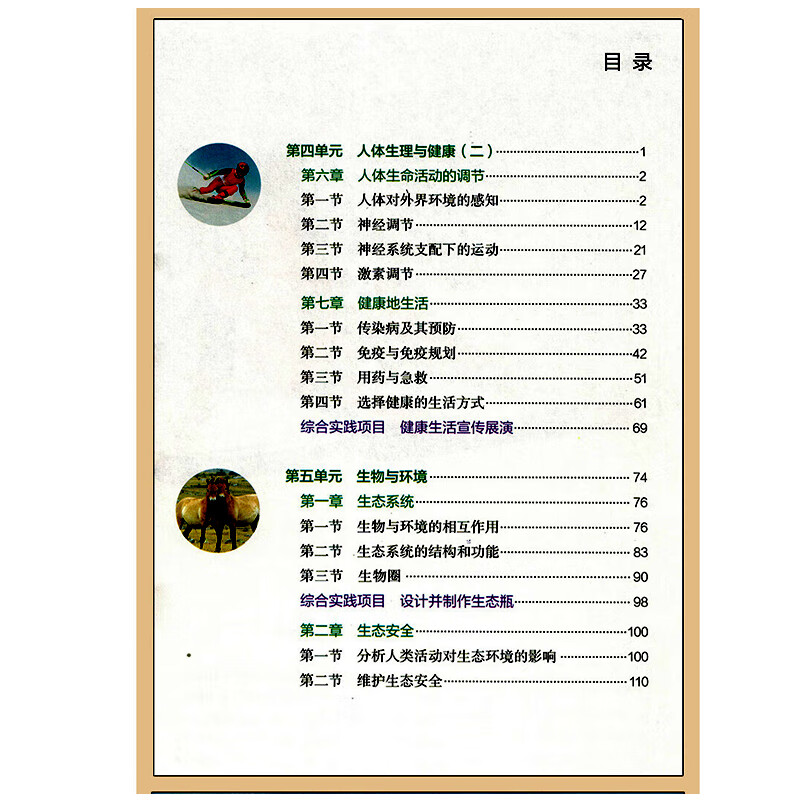 目录
第四单元 人体生理与健康（二）······1
第六章 人体生命活动的调节······2
第一节 人体对外界环境的感知······2
第二节 神经调节······12
第三节 神经系统支配下的运动······21
第四节 激素调节······27
第七章 健康地生活······33
第一节 传染病及其预防······33
第二节 免疫与免疫规划······42
第三节 用药与急救······51
第四节 选择健康的生活方式······61
综合实践项目 健康生活宣传展演······69
第五单元 生物与环境······74
第一章 生态系统······76
第一节 生物与环境的相互作用······76
第二节 生态系统的结构和功能······83
第三节 生物圈······90
综合实践项目 设计并制作生态瓶······98
第二章 生态安全······100
第一节 分析人类活动对生态环境的影响······100
第二节 维护生态安全······110